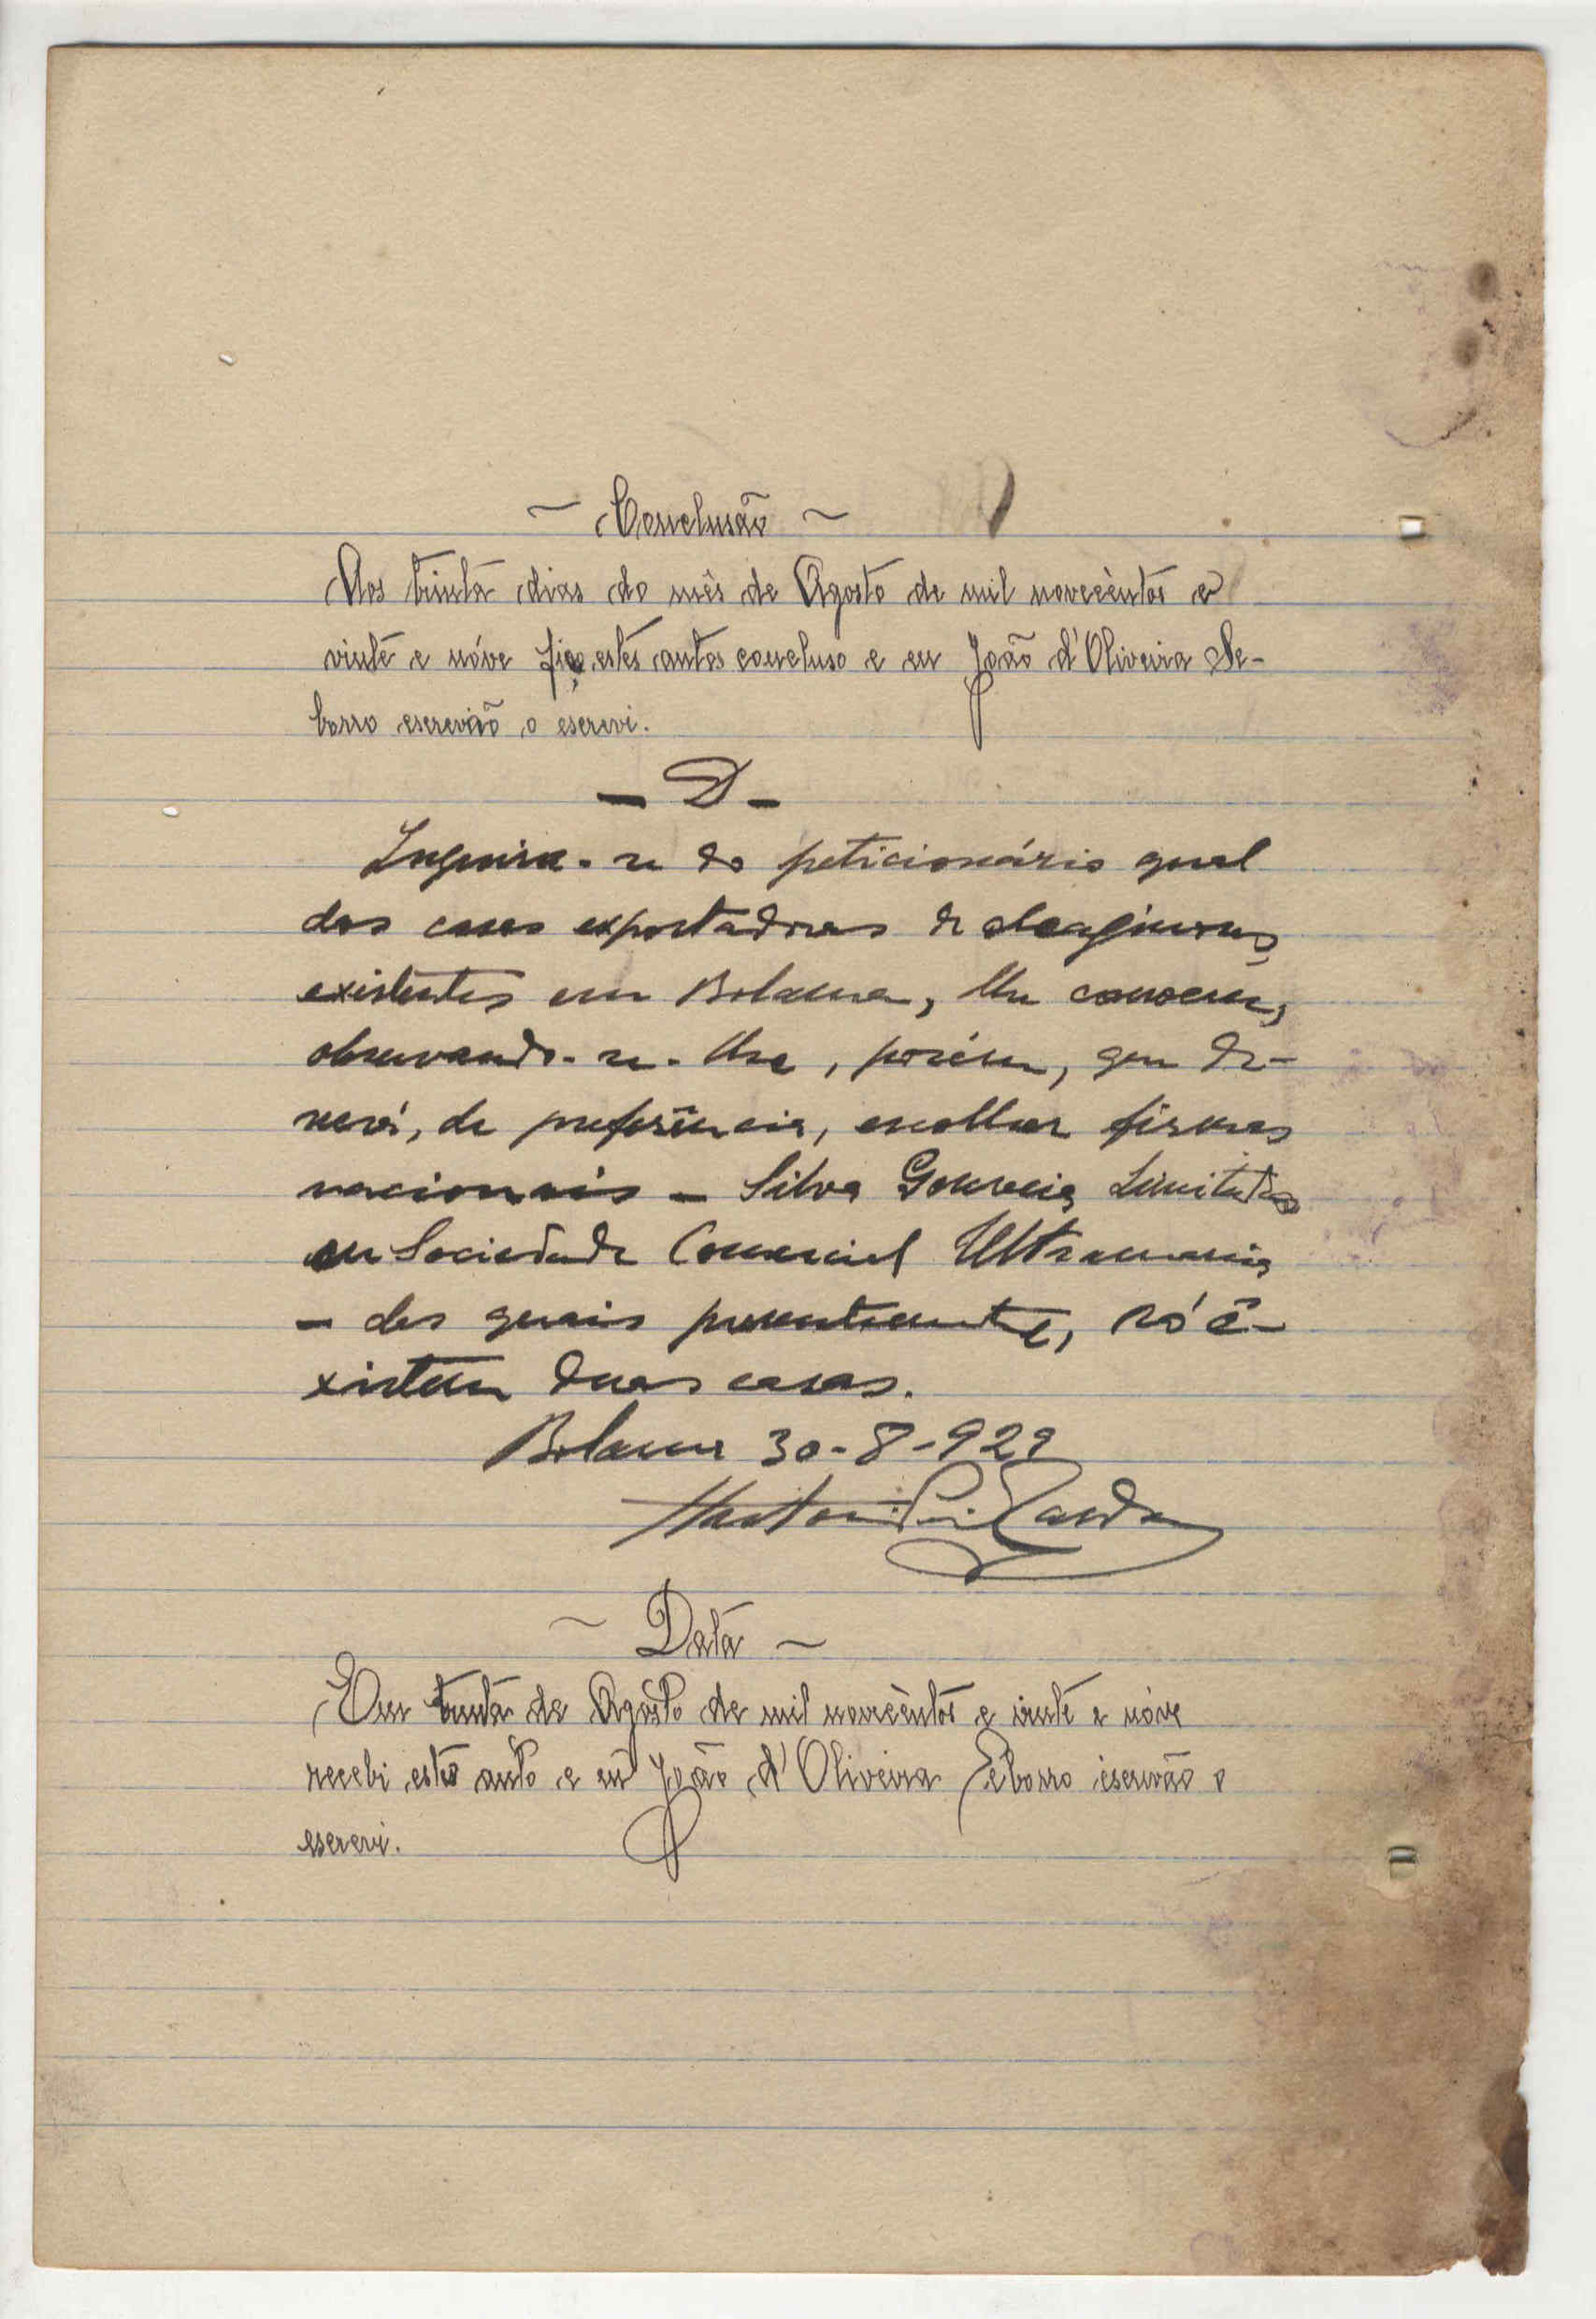 ~ Conclusão ~
Aos trinta dias do mês de Agosto de mil novecêntos e
vinte e nóve faço estes autos concluso e eu João d'Oliveira Se-
borro escrevão o escrevi.
- D -
Inquira-se do peticionário qual
das casas exportadoras de oleaginosas,
existentes em Bolama, lhe convem,
observando-se-lhe, porém, que de-
verá, de preferência, escolher firmas
nacionais - Silva Gouveia, Limitada
ou Sociedade Comercial Ultramarina
- das quais presentemente, só e-
xistem duas casas.
Bolama 30-8-929
~ Data ~
Em trinta de Agósto de mil novecèntos e vinte e nóve
recebi este auto e eu João d'Oliveira Seborro escrivão o
escrevi.